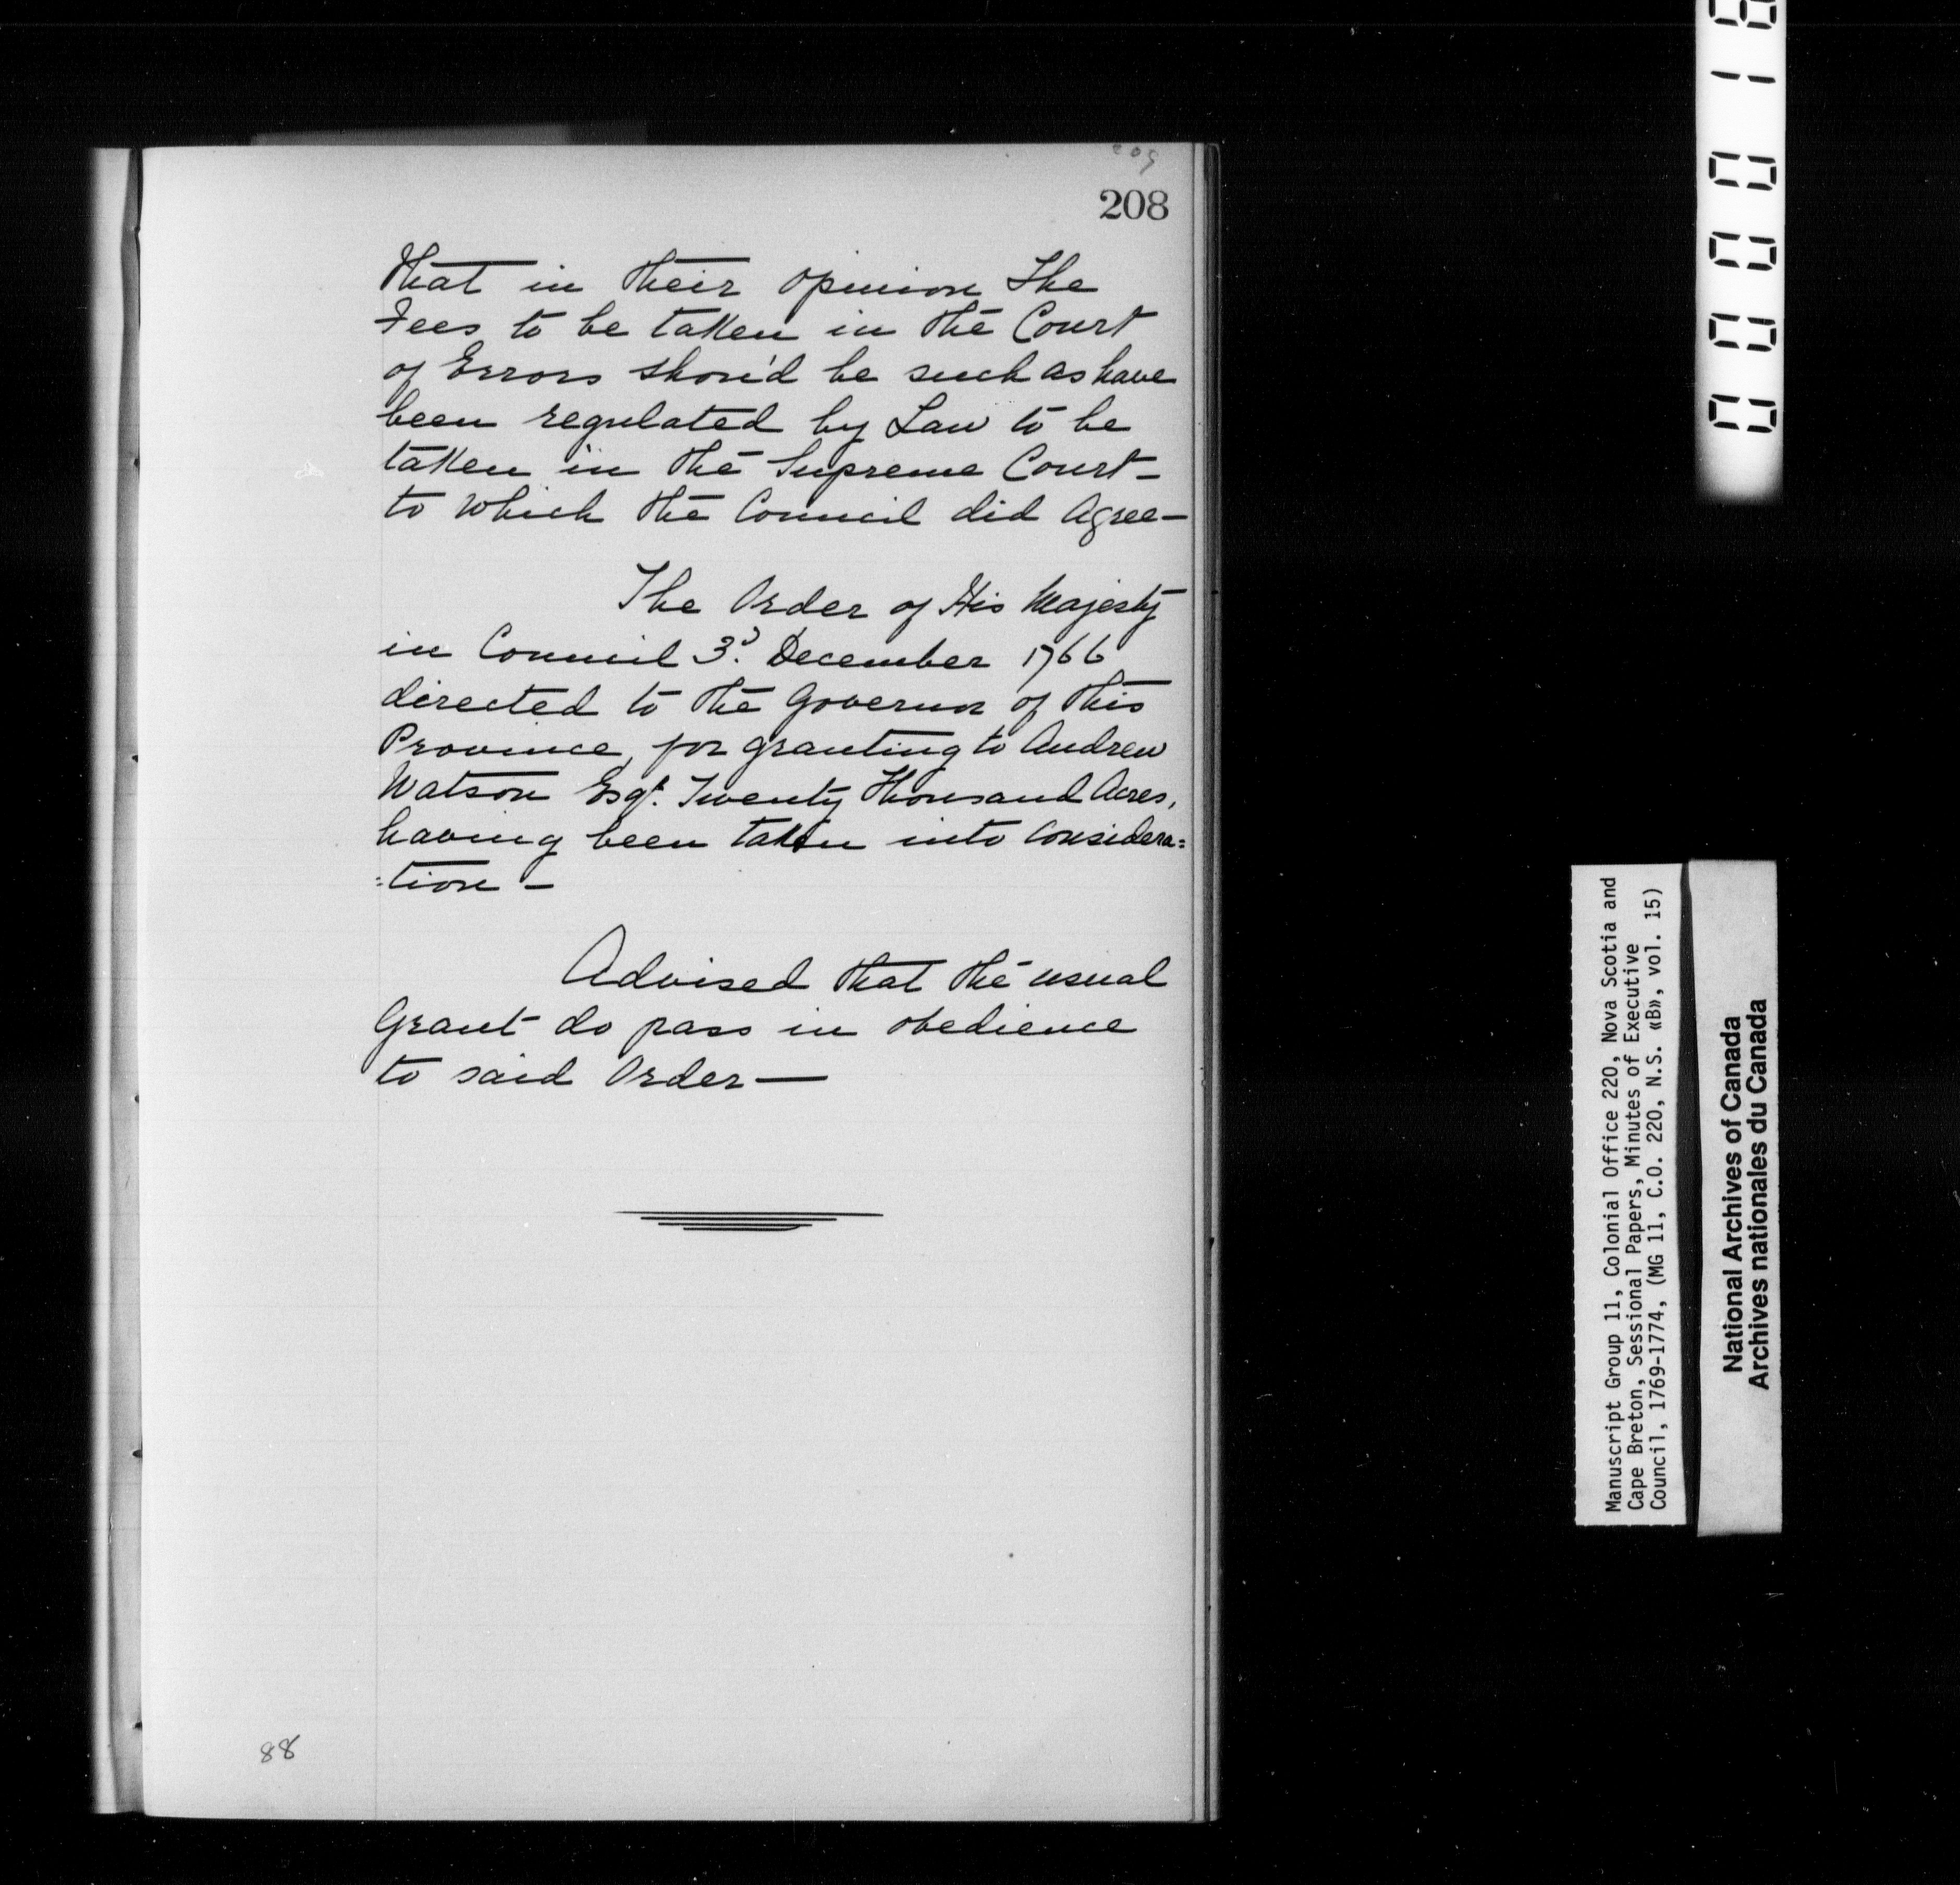 209
208
that in their opinion The
Fees to be taken in the Court
of Errors shou'd be such as have
been regulated by Law to be
taken in the Supreme Court—
to which the Council did Agree—
The Order of His Majesty
in Council 3d. December 1766
directed to the Governor of this
Province, for granting to Andrew
Watson Esqr. Twenty Thousand Acres,
having been taken into Considera=
=tion —
Advised that the usual
Grant do pass in obedience
to said Order —
88
Manuscript Group 11, Colonial Office 220, Nova Scotia and
Cape Breton, Sessional Papers, Minutes of Executive
Council, 1769-1774, (MG 11, C.O. 220, N.S. «B», vol. 15)
National Archives of Canada
Archives nationales du Canada